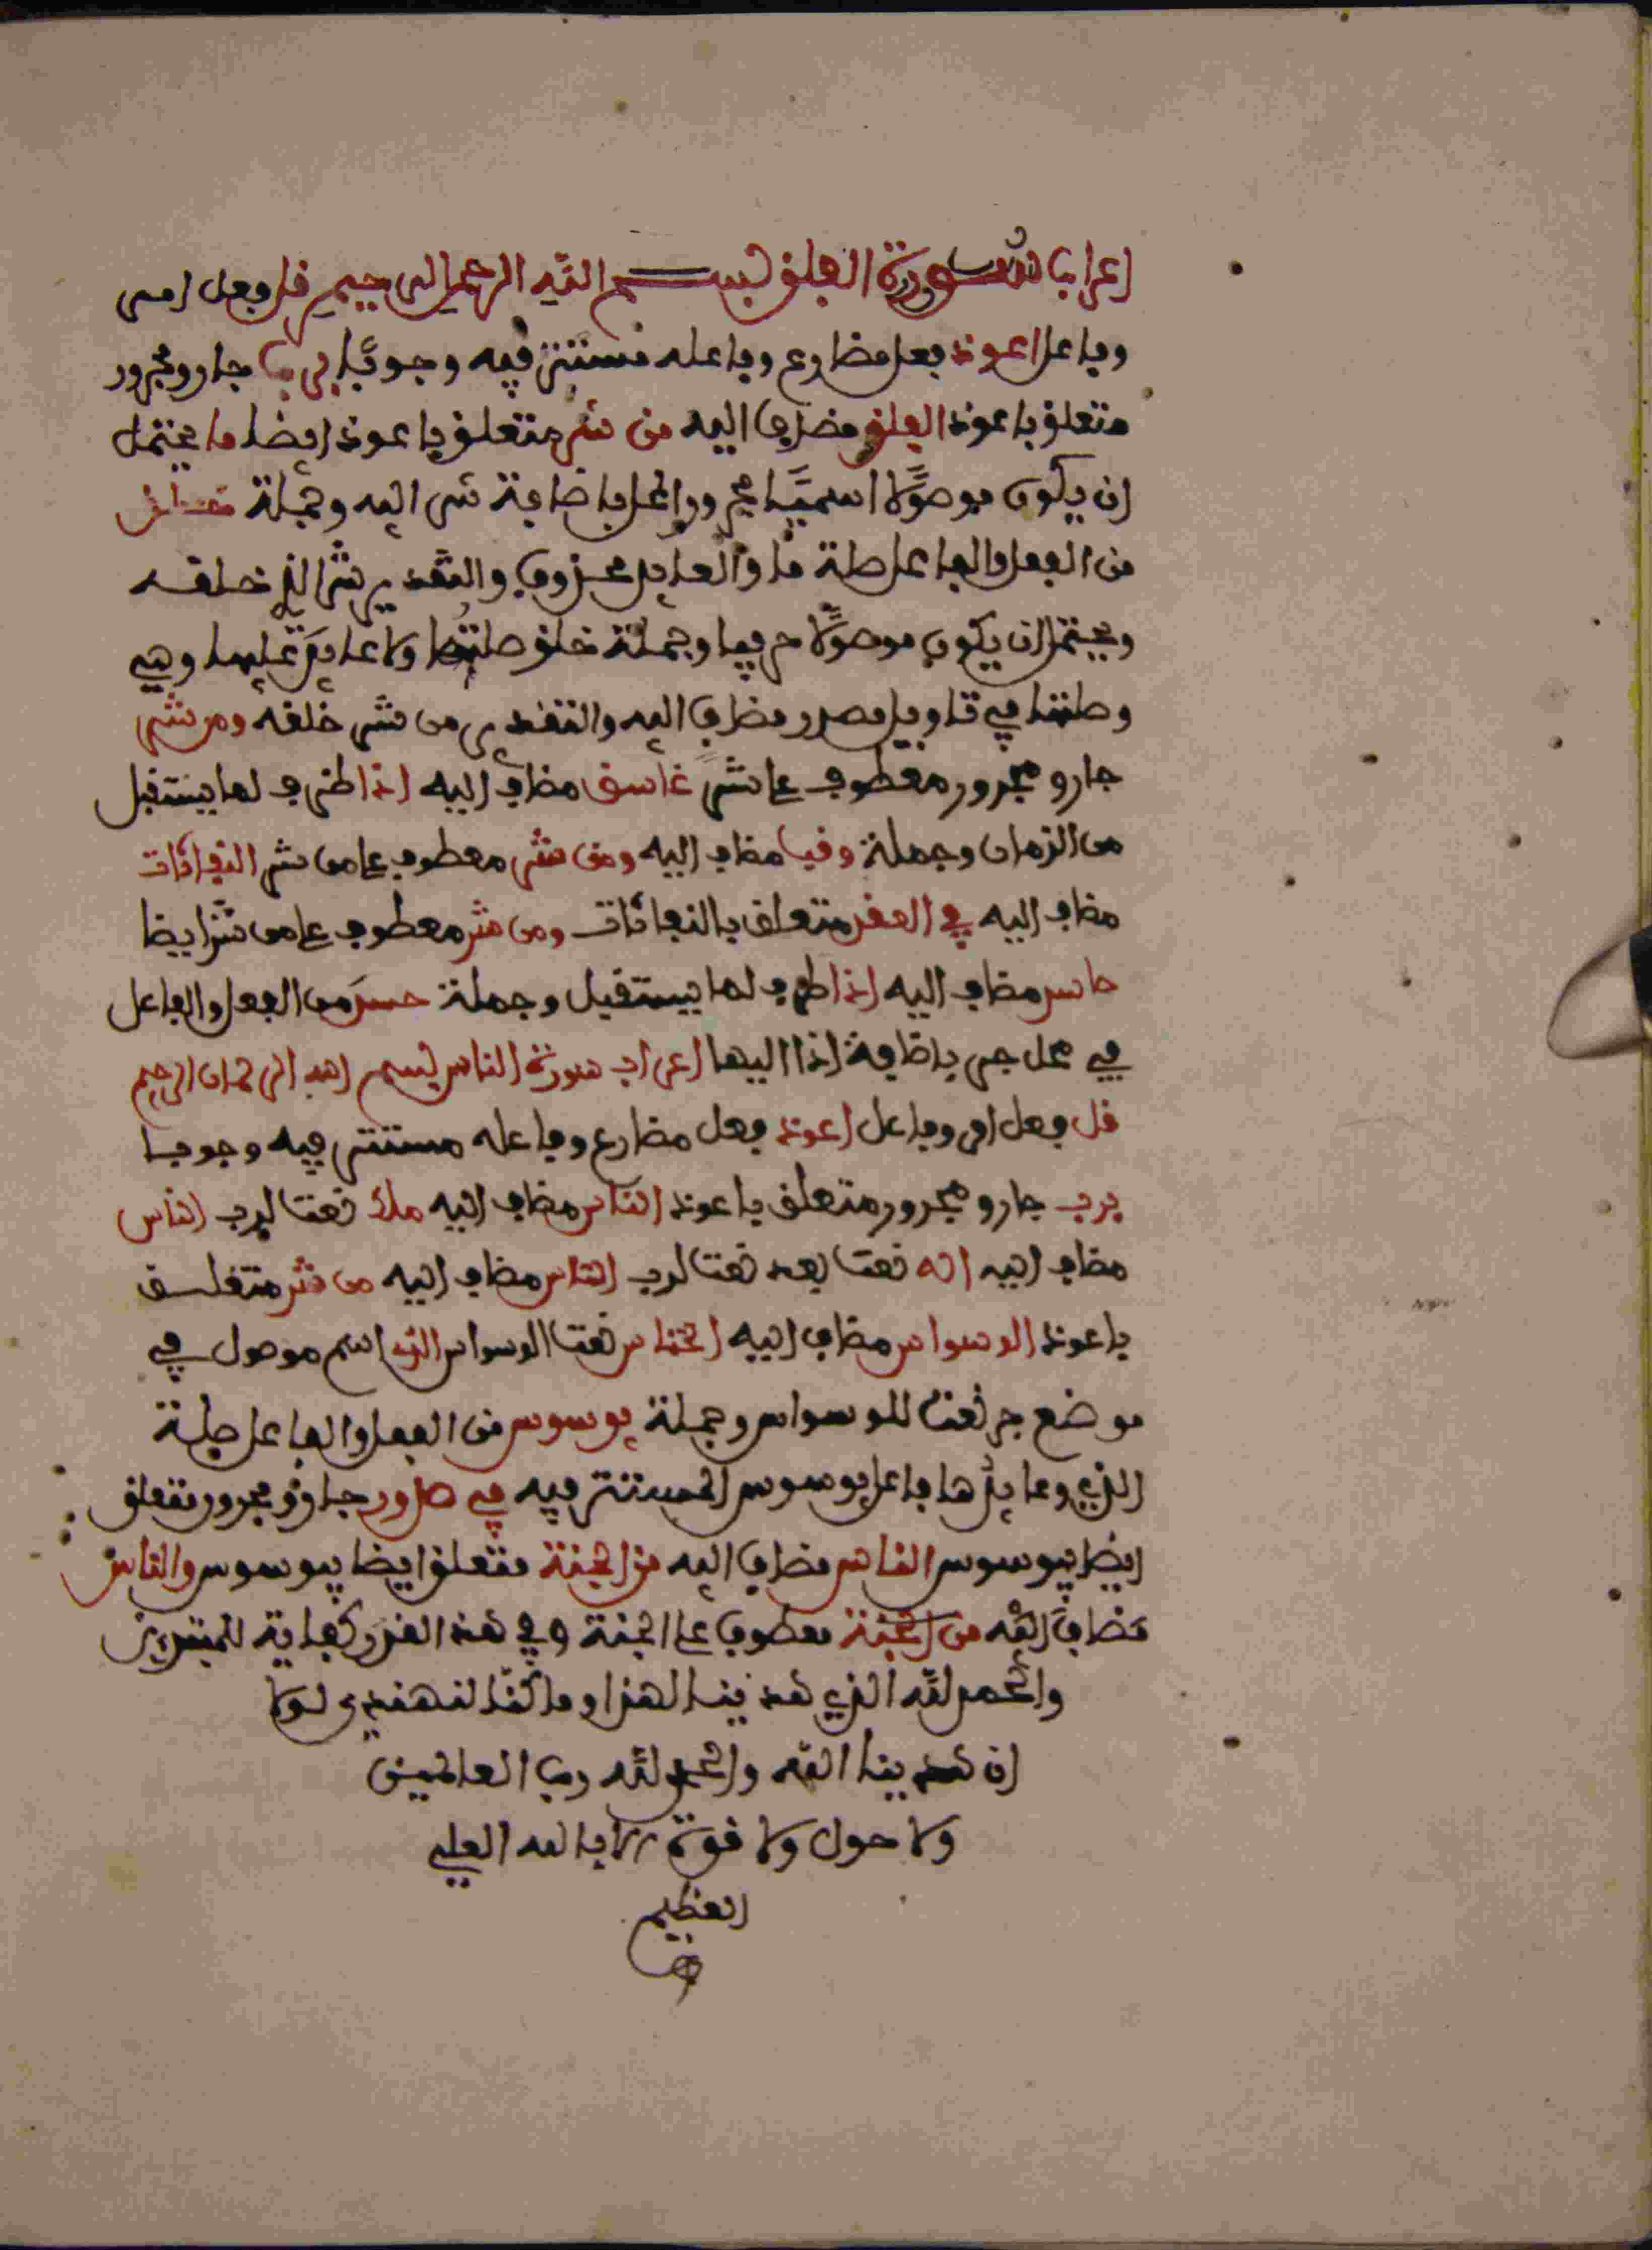 اعراب سورة الفلق بسم الله الرحمن الرحيم قل فعل امر
وفاعل اعوذ فعل مضارع وفاعله مستتر فيه وجوبا برب جار ومجرور
متعلق باعوذ الفلق مضاف اليه من شر متعلق باعوذ ايضا ما يحتمل
ان يكون موصولا اسميا مجرور المحل باضافة شر اليه وجملة خلق
من الفعل والفاعل صلة ما والعايد محذوف والتقدير شر الذي خلقه
ويحتمل ان يكون موصولا حرفيا وجملة خلق صلتها ولا عايد عليها وهي
وصلتها في تاويل مصدر مضاف اليه والتقدير من شر خلقه ومن شر
جار ومجرور معطوف على شر غاسق مضاف اليه اذا ظرف لما يستقبل
من الزمان وجملة وقب مضاف اليه ومن شر معطوف على من شر النفاثات
مضاف اليه في العقد متعلق بالنفاثات ومن شر معطوف على من شر ايضا
حاسد مضاف اليه اذا ظرف لما يستقبل وجملة حسد من الفعل والفاعل
في محل جر باضافة اذا اليها اعراب سورة الناس بسم الله الرحمان الرحيم
قل فعل امر وفاعل اعوذ فعل مضارع وفاعله مستتر فيه وجوبا
برب جار ومجرور متعلق باعوذ الناس مضاف اليه ملك نعت لرب الناس
مضاف اليه اله نعت بعد نعت لرب الناس مضاف اليه من شر متعلق
باعوذ الوسواس مضاف اليه الخناس نعت الوسواس الذي اسم موصول في
موضع جر نعت للوسواس وجملة يوسوس من الفعل والفاعل صلة
الذي وعايدها فاعل يوسوس المستتر فيه في صدور جار ومجرور متعلق
ايضا بيوسوس الناس مضاف اليه من الجنة متعلق ايضا بيوسوس والناس
مضاف اليه من الجنة معطوف على الجنة وفي هذا القدر كفاية للمبتدين
والحمد لله الذي هدينا لهذا وما كنا لنهتدي لولا
ان هدينا الله والحمد لله رب العالمين
ولا حول ولا قوة الا بالله العلي
العظيم